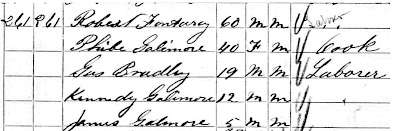 261 261 Robert Fontaroy 60 M M
Phibe Galimore 40 F M Cook
Gus Bradley 19 M M Laborer
Kennedy Galimore 12 M M
James Galimore 5 M M